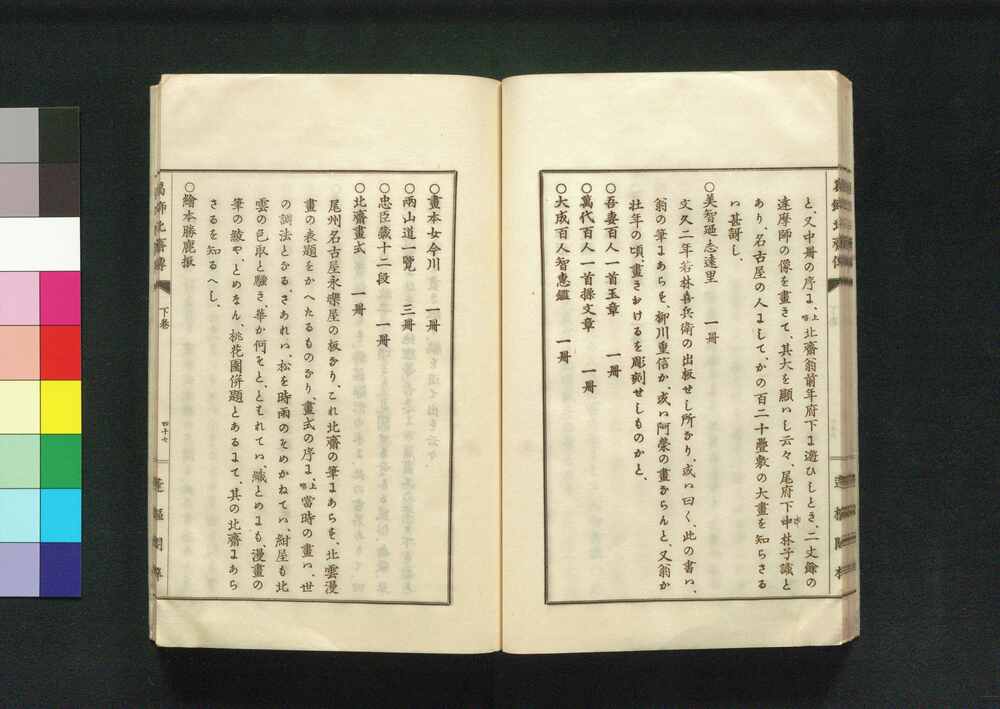 と、又中冊の序に、上略北齋翁前年府下に遊ひしとき、二丈餘の
達摩師の像を畫きて、其大を顯いし云々、尾府下中林子識と
あり、名古屋の人にして、かの百二十疊敷の大畫を知らさる
ハ甚訝し、
○美智廼志遠里 一冊
文久二年若林喜兵衛の出板せし所なり、或ハ曰く、此の書ハ、
翁の筆にあらを、柳川重信か、或ハ阿榮の畫ならんと、又翁か
壮年の頃、畫きおけるを彫刻せしものかと、
○吾妻百人一首玉章 一冊
○萬代百人一首操文章 一冊
○大成百人智惠鑑 一冊
○畫本女今川 一冊
○兩山道一覽 三冊
○忠臣藏十二段 一冊
○北齋畫式 一冊
尾州名古屋永樂屋の板なり、これ北齋の筆にあらを、北雲漫
畫の表題をかへたるものなり、畫式の序に、上略當時の畫ハ、世
の調法となる、されハ、松を時雨のそめかねてハ、紺屋も北
雲の色取と騷き、華か何そと、ともれてハ、織とめにも、漫畫の
筆の綾や、とめなん、桃花園併題とあるにて、其の北齋にあら
さるを知るへし、
○繪本勝鹿振
葛飾北齋傳
下巻
四十七